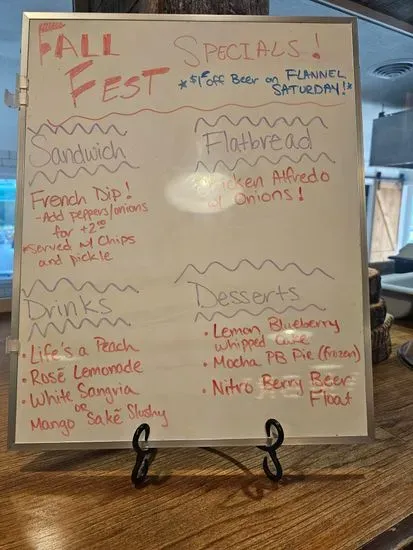 FALL
FEST
SPECIALS!
*$1 off Beer on FLANNEL
SATURDAY!*
Sandwich
French Dip!
-Add peppers/onions
for +2.00
*Served w/ Chips
and pickle
Flatbread
Chicken Alfredo
w/ Onions!
Drinks
• Life's a Peach
• Rosé Lemonade
• White Sangria
or
Mango Saké Slushy
Desserts
• Lemon Blueberry
whipped cake
• Mocha PB Pie (frozen)
• Nitro Berry Beer
Float